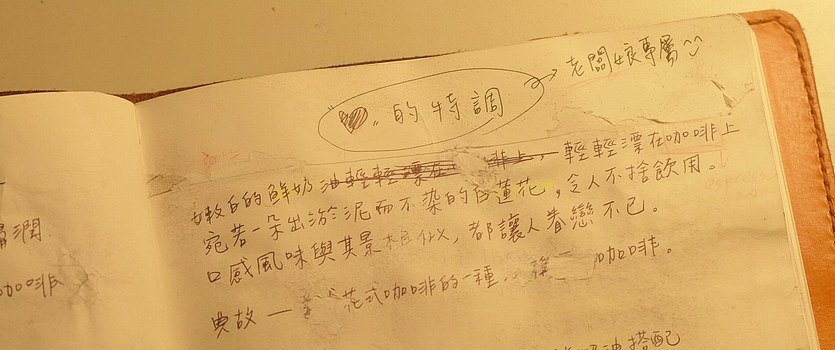 老闆娘專屬
的特調
嫩白的鮮奶油輕輕漂在 非上,輕輕漂在咖啡上
宛若一朵出淤泥而不染的白蓮花,令人不捨飲用。
口感風味與其景相似,都讓人眷戀不已。
典故一 花式咖啡的一種 咖啡。
油搭配
潤
咖啡